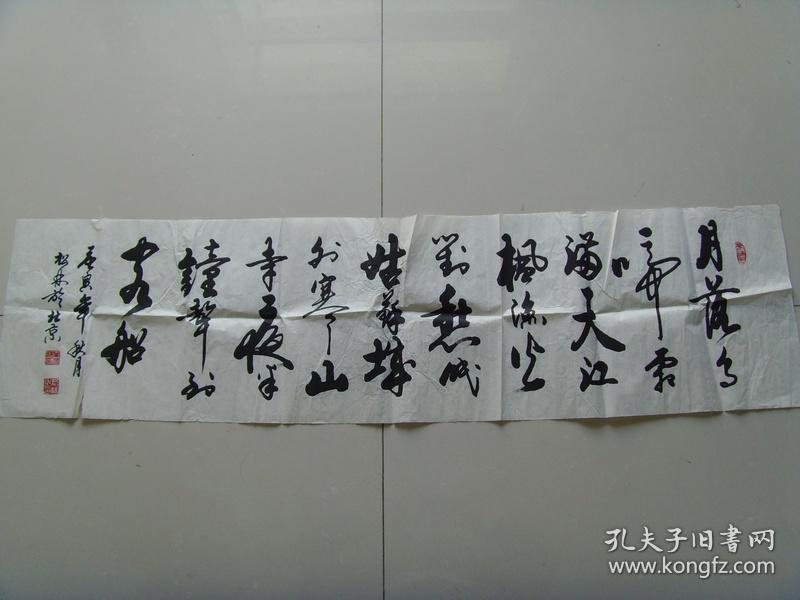 月落烏
啼霜
滿天江
楓漁火
對愁眠
姑蘇城
外寒山
寺夜半
鐘聲到
客船
庚寅年秋月
松林於北京
孔夫子旧书网
www.kongfz.com